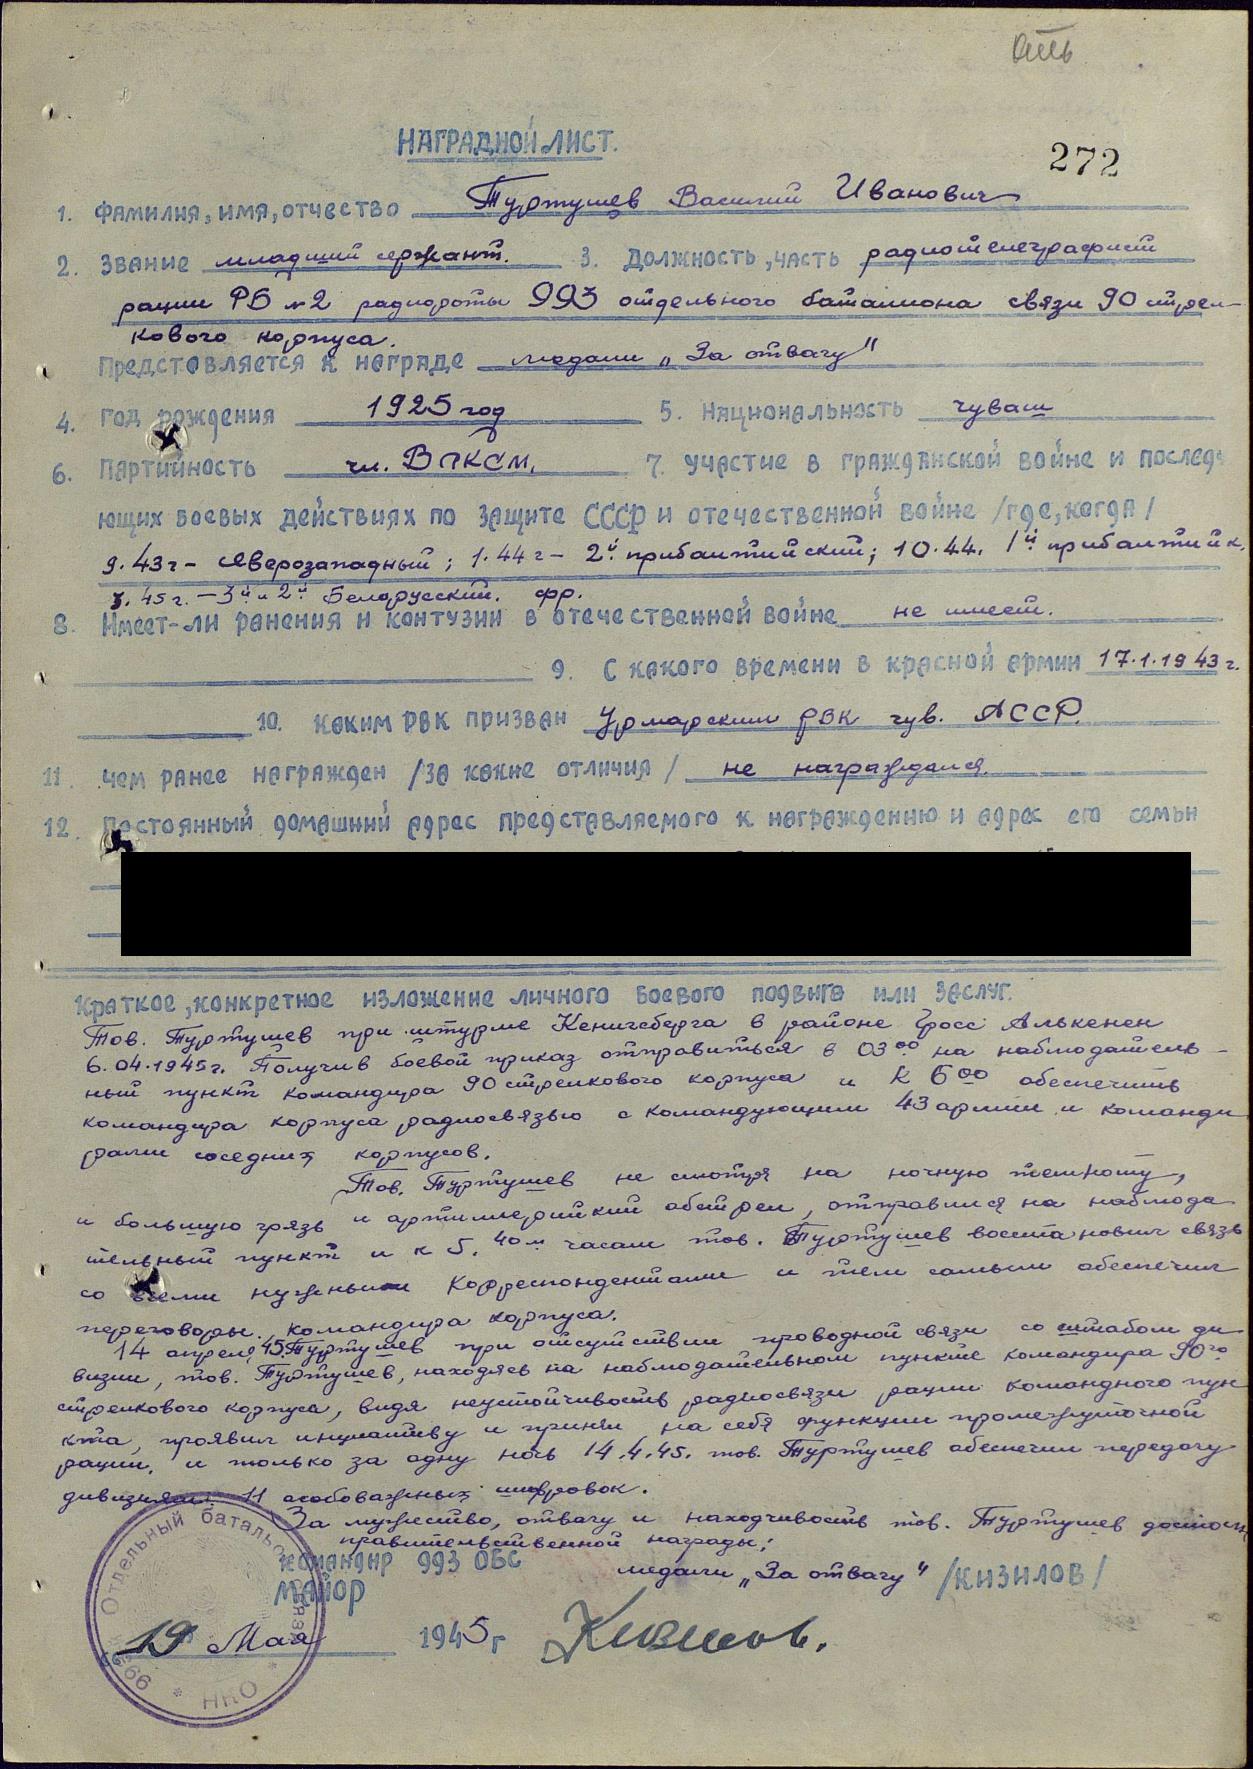 НАГРАДНОЙ ЛИСТ.
272
1. Фамилия, имя, отчество Туртушев Василий Иванович
2. Звание младший сержант. 3. Должность, часть радиотелеграфист
рации РБ №2 радиороты 993 отдельного баталиона связи 90 стрел-
кового корпуса.
Представляется к награде медали „За отвагу"
4. Год рождения 1925 год 5. Национальность чуваш
6. Партийность чл. ВЛКСМ. 7. Участие в гражданской войне и последу
ющих боевых действиях по защите СССР и отечественной войне /где, когда/
9.43г - Северозападный; 1.44г - 2й прибалтийский; 10.44. 1й прибалтийск.
3.45г. - 3й и 2й Белорусский. фр.
8. Имеет-ли ранения и контузии в отечественной войне не имеет.
9. С какого времени в красной армии 17.1.1943г.
10. Каким РВК призван Урмарским РВК чув. АССР.
11. Чем ранее награжден /за какие отличия/ не награждался.
12. Постоянный домашний адрес представляемого к награждению и адрес его семьи
Краткое, конкретное изложение личного боевого подвига или заслуг.
Тов. Туртушев при штурме Кенигсберга в районе Гросс Алькенен
6.04.1945г. Получив боевой приказ отправиться в 03 00 на наблюдатель-
ный пункт командира 90 стрелкового корпуса и к 6 00 обеспечить
командира корпуса радиосвязью с командующим 43 армии и команди
рами соседних корпусов.
Тов. Туртушев не смотря на ночную темноту,
и большую грязь и артиллерийский обстрел, отправился на наблюда
тельный пункт и к 5. 40 м часам тов. Туртушев восстановил связь
со всеми нужными корреспондентами и тем самым обеспечил
переговоры. командира корпуса.
14 апреля 45. Туртушев при отсутствии проводной связи со штабом ди
визии, тов. Туртушев, находясь на наблюдательном пункте командира 90го
стрелкового корпуса, видя неустойчивость радиосвязи рации командного пун
кта, проявил инциативу и принял на себя функции промежуточной
рации. и только за одну ночь 14.4.45. тов. Туртушев обеспечил передачу
дивизиям 11 особоважных шифровок.
За мужество, отвагу и находчивость тов. Туртушев достоин
правительственной награды:
медали „За отвагу"
Командир 993 ОБС
Майор /КИЗИЛОВ/
19 Мая 1945г Кизилов.
Отдельный батальон связи * НКО * 993